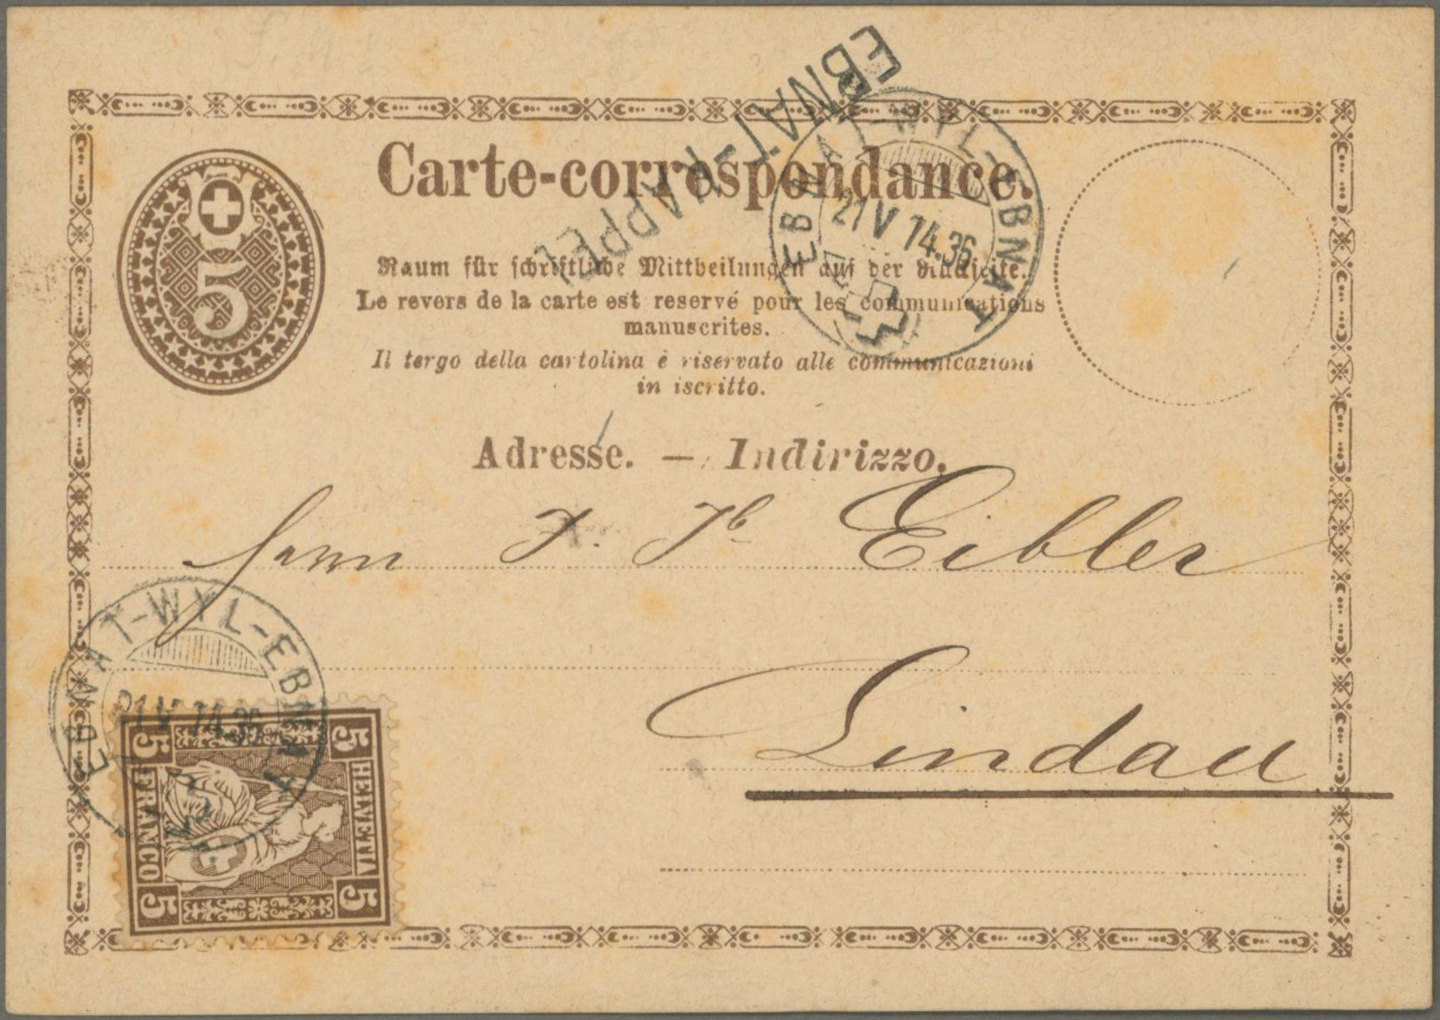 EBNAT-KAPPEL
Carte-correspondance.
EBNAT-WYL-EBNAT
21 V 74.36
5
Raum für schriftliche Mittheilungen auf der Rückseite.
Le revers de la carte est reservé pour les communications
manuscrites.
Il tergo della cartolina è riservato alle communicazioni
in iscritto.
Adresse. — Indirizzo.
Herrn F. Jb Eibler
EBNAT-WYL-EBNAT
21 V 74.36
Lindau
5 5
FRANCO HELVETIA
5 5